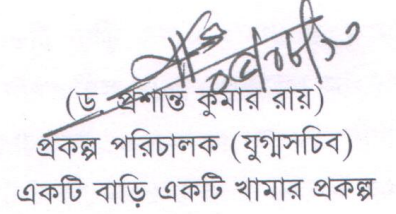 (ড. প্রশান্ত কুমার রায়)
প্রকল্প পরিচালক (যুগ্মসচিব)
একটি বাড়ি একটি খামার প্রকল্প